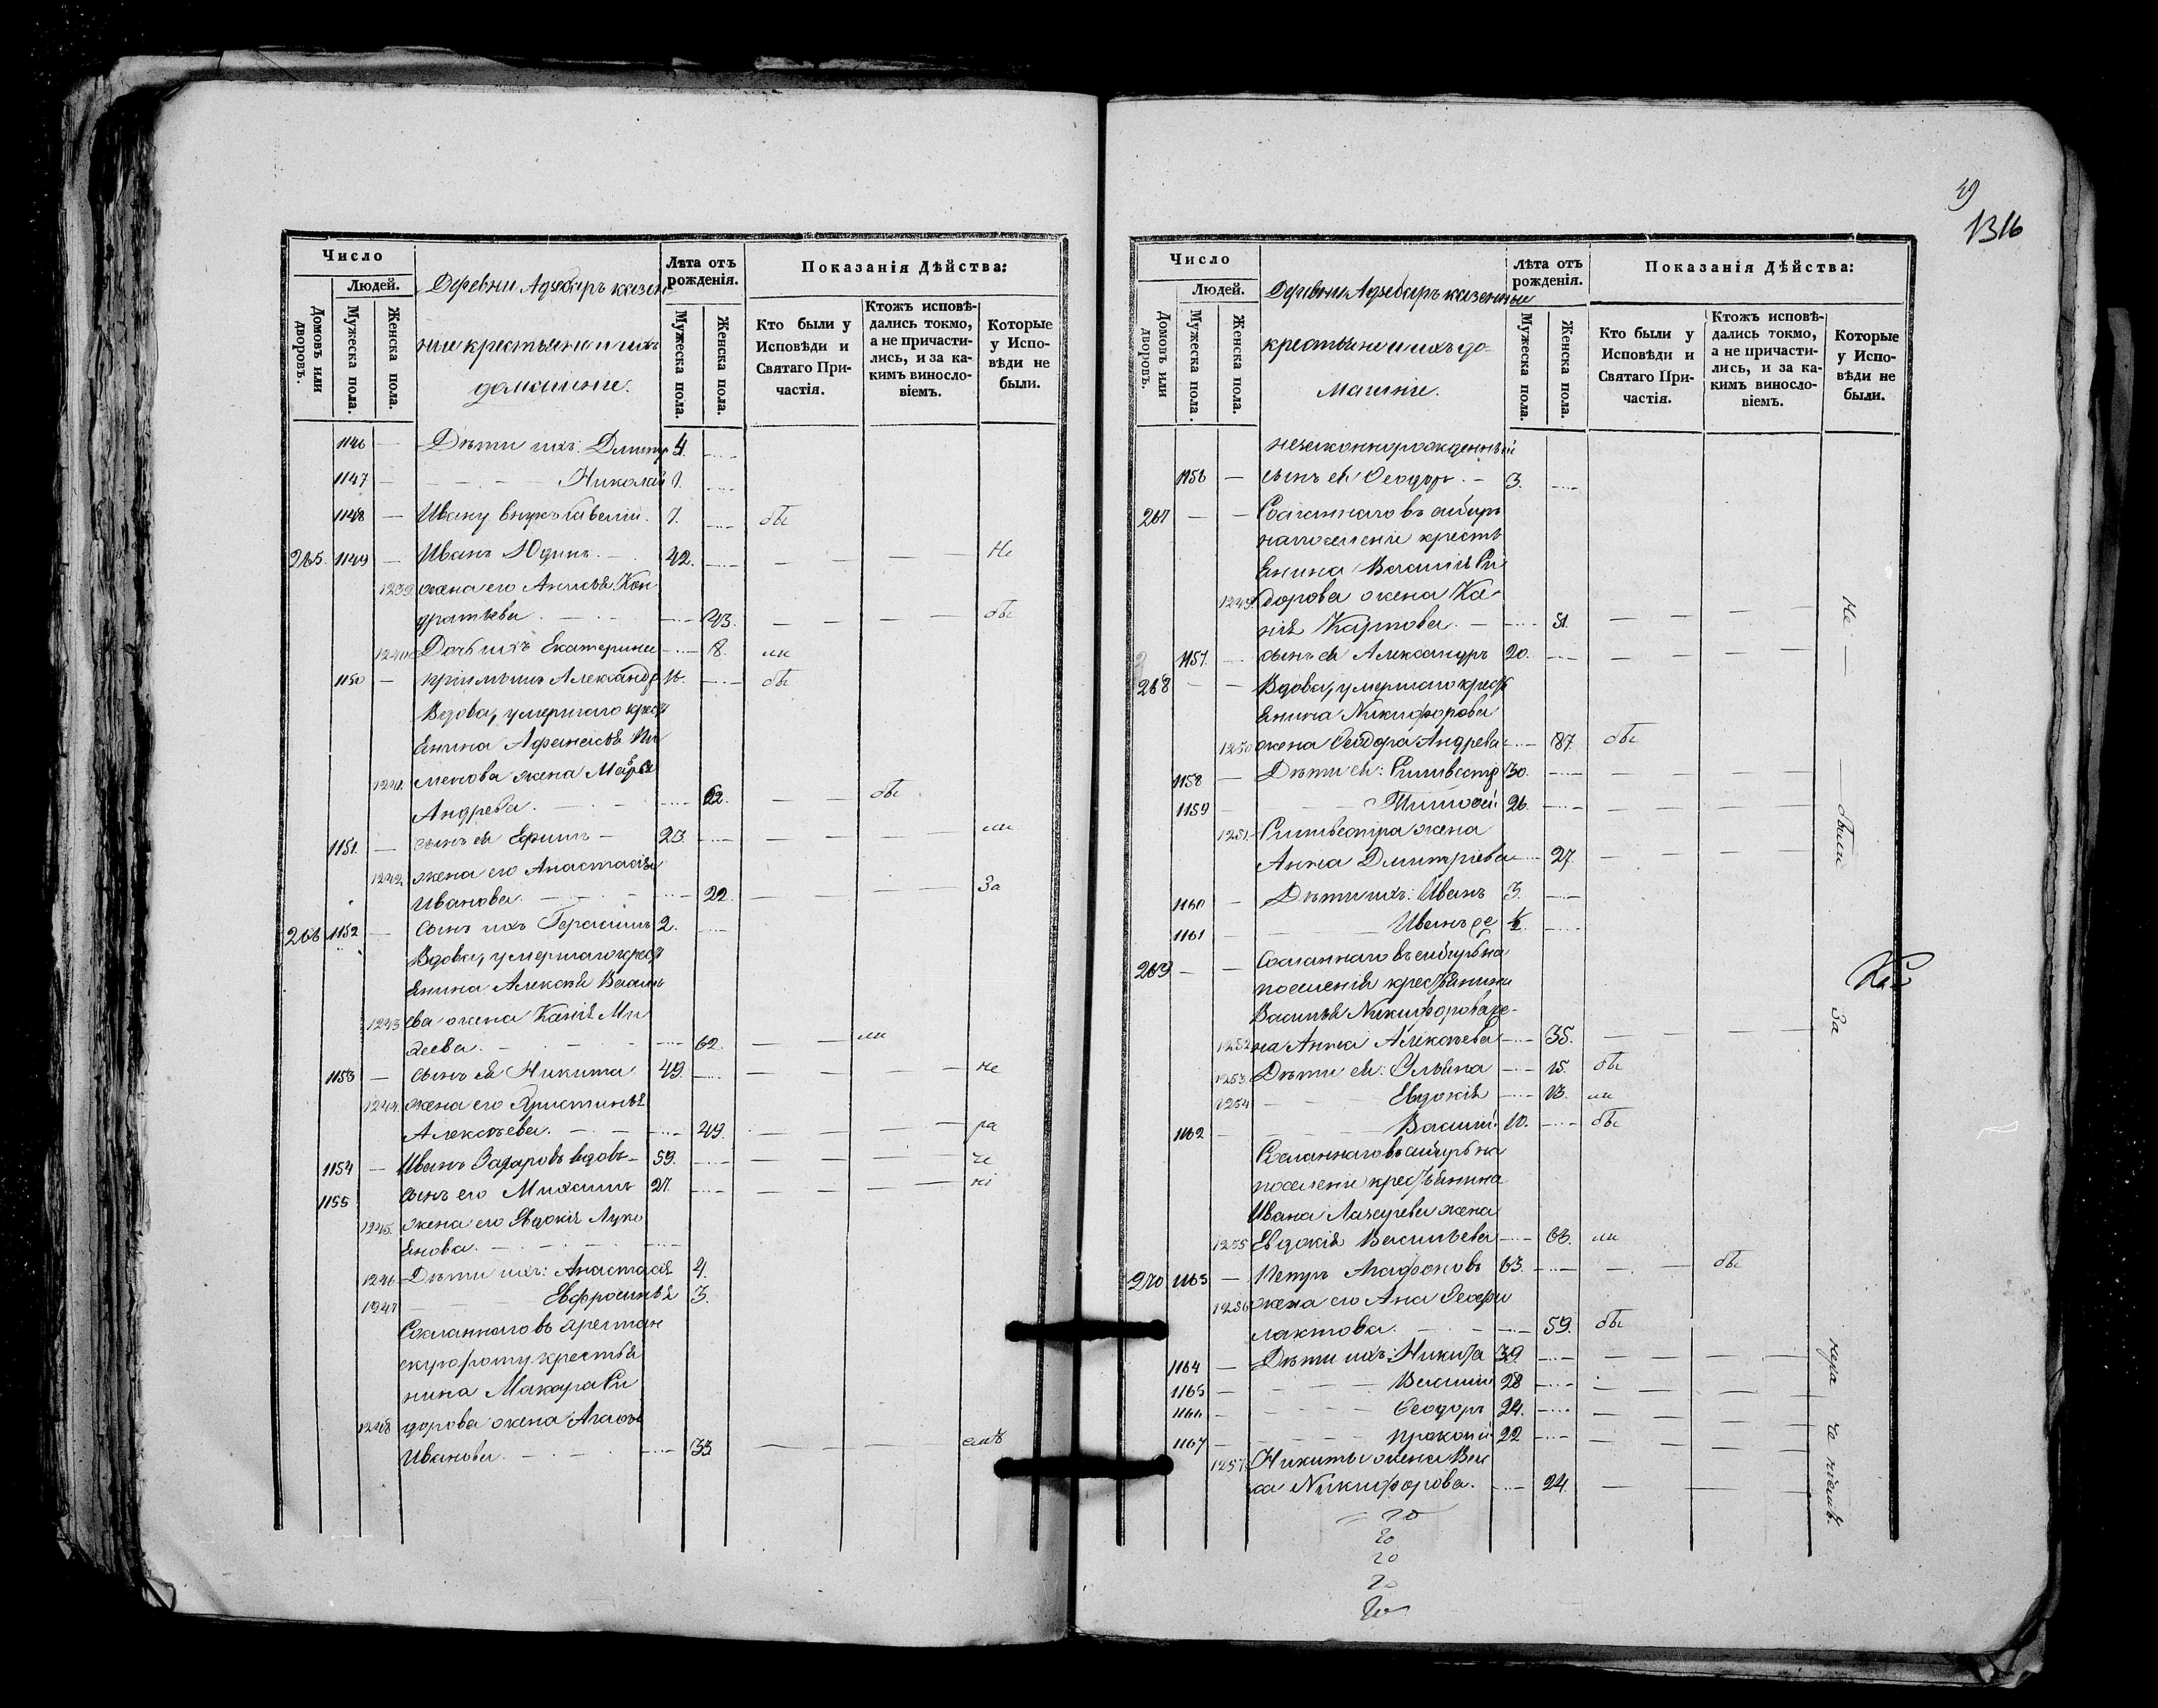 Число
Людей.
Домовъ или дворовъ.
Мужеска пола.
Женска пола.
Деревни Адзебиръ казен
ние крестьяне и ихъ
домашніе.
Лѣта отъ рожденія.
Мужеска пола.
Женска пола.
Показанія Дѣйства:
Кто были у Исповѣди и Святаго Причастія.
Ктожъ исповѣдались токмо, а не причастились, и за какимъ винословіемъ.
Которые у Исповѣди не были.
1146 — Дѣти ихъ: Димитр 4.
1147 — Николай 1.
1148 — Ивану внукъ Савелій. 7. бы
265. 1149 — Иванъ Юдинъ. 42. — — — — Не
1239 жена его Анисья Кон
дратьева 43. — — — — бы
1240 Дочь ихъ Екатерина 8. ли
1150 — пріимышъ Александр 16. бы
Вдова, умершаго крест
янина Афанасья Пи
1241. менова жена Марѳа
Андреева. 62. — — бы
1151. — сынъ ея Ефимъ — 23. — — — — ли
1242 жена его Анастасія
Иванова. 22. — — За
266 1152 — Сынъ ихъ Герасимъ 2.
Вдова, умершаго крест
янина Алексѣя Василь
1243 ева жена Ксенія Ми
хеева. 62. — — ли
1153 — сынъ ея Никита 49. — — — — не
1244. жена его Христинья
Алексѣева. 49. — — — — ра
1154 — Иванъ Захаровъ вдовъ 59. — — — че
1155 сынъ его Михаилъ 27. — — — — ні
1245. жена его Евдокія Лукі
янова.
1246 Дѣти ихъ: Анастасія 4.
1247 — Евфросинья 3.
Сосланнаго въ арестан
скую роту крестья
нина Макара Си
1248 дорова жена Агаѳья
Иванова. 33 — — — емъ
49
1316
Число
Людей.
Домовъ или дворовъ.
Мужеска пола.
Женска пола.
Деревни Адзебиръ казенные
крестьяне и ихъ до-
машніе.
Лѣта отъ рожденія.
Мужеска пола.
Женска пола.
Показанія Дѣйства:
Кто были у Исповѣди и Святаго Причастія.
Ктожъ исповѣдались токмо, а не причастились, и за какимъ винословіемъ.
Которые у Исповѣди не были.
незаконнорожденный
1156 — сынъ ея Ѳеодоръ. — 3.
267 — — Сосланнаго въ сибирь
на поселеніе кресть
янина Василія Си
1249. дорова жена Ксе-
нія Карпова. — 51. — — — —
1157. — сынъ ея Александръ 20. — — — —
268 — — Вдова, умершаго крест
янина Никифорова
1250 жена Ѳеодора Андреева 87. бы
1158 — Дѣти ея: Сильвестр 30. — — — —
1159 — Тимоѳей 26. — — — —
1251. Сильвестра жена
Анна Димитріева 27. — — — —
1160 — Дѣти ихъ: Иванъ 3.
1161 — Иванъ же ½.
269 — — Сосланнаго въ сибирь на
поселенія крестьянина
Василья Никифорова же-
1252 на Анна Алексѣева 35. — — —
1253. Дѣти ея: Ульяна 15. бы
1254 — Евдокія 13. ли
1162 — Василій 10. бы
Сосланнаго въ сибирь на
поселеніе крестьянина
Ивана Лазарева жена
1255 Евдокія Васильева 63. ли
270 1163 — Петръ Агафоновъ 63. — — бы
1256 жена его Анна Ѳеофи
лактова. 59. бы
1164 — Дѣти ихъ: Никита 39. — — — —
1165 — Василій 28 — — — —
1166 — Ѳеодоръ 24. — — — —
1167 — Прокопій 22 — — — —
1257. Никиты жена Вас
са Никифорова. 24. — —
Не — — были За нера че ніемъ.
20
20
20
20
20